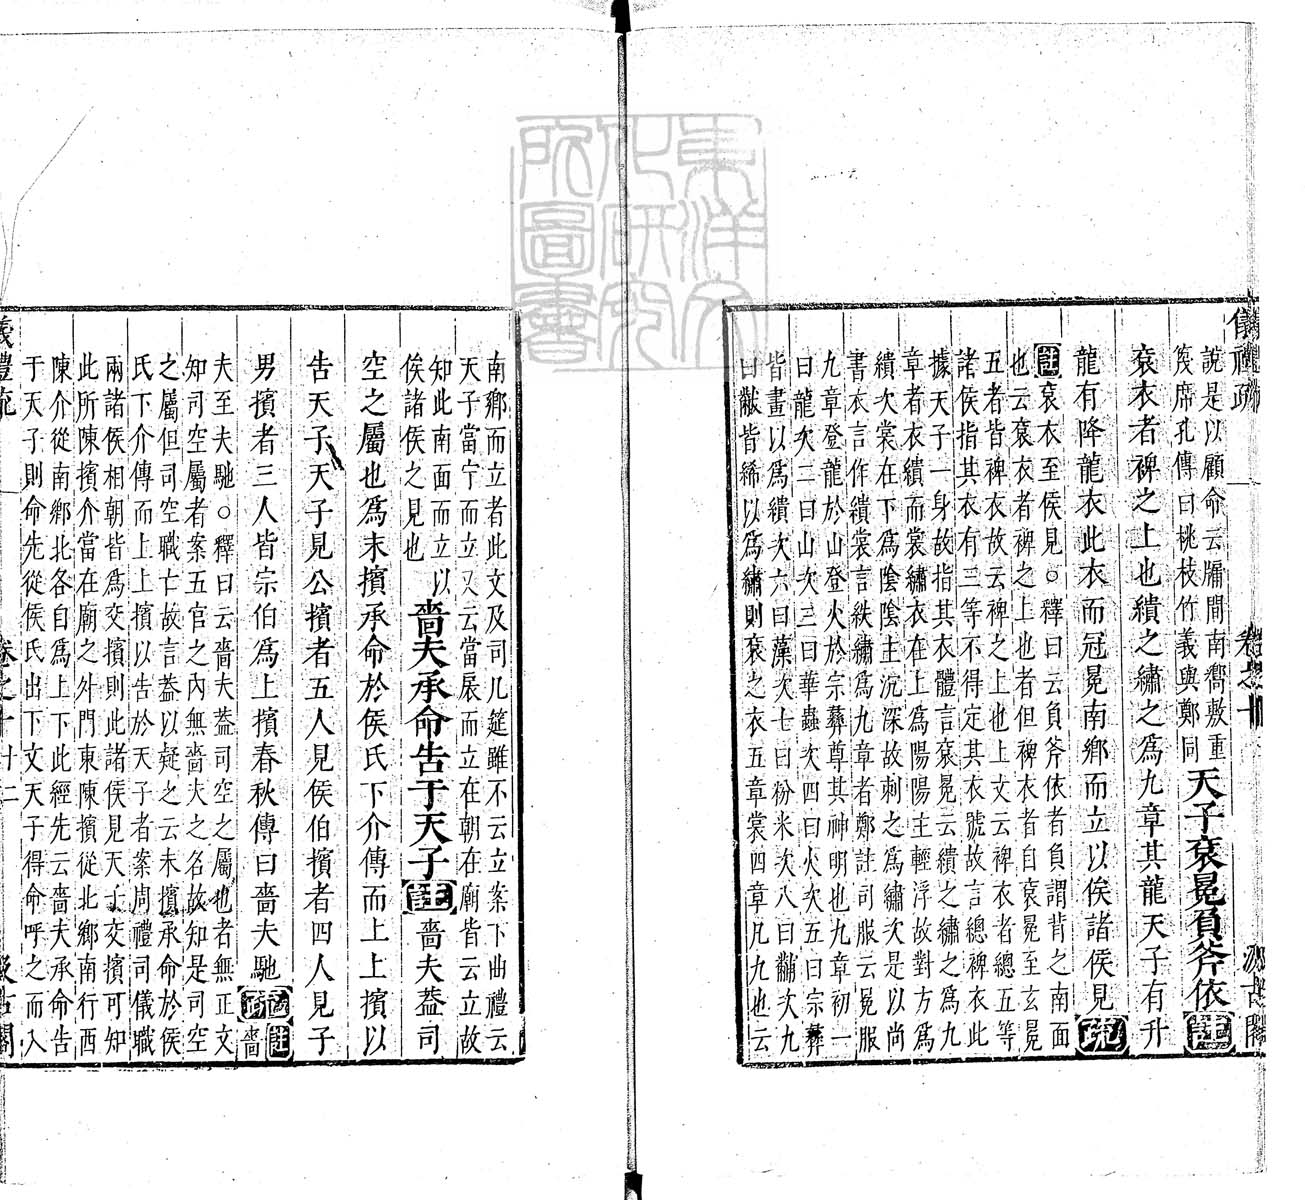 說是以顧命云牖間南嚮敷重
篾席孔傳曰桃枝竹義與鄭同
天子袞冕負斧依註
袞衣者裨之上也繢之繡之爲九章其龍天子有升
龍有降龍衣此衣而冠冕南鄉而立以俟諸侯見疏
註袞衣至侯見○釋曰云負斧依者負謂背之南面
也云袞衣者裨之上也者但裨衣者自袞冕至玄冕
五者皆裨衣故云裨之上也上文云裨衣者總五等
諸侯指其衣有三等不得定其衣號故言總裨衣此
據天子一身故指其衣體言袞冕云繢之繡之爲九
章者衣繢而裳繡衣在上爲陽陽主輕浮故對方爲
繢次裳在下爲陰陰主沉深故刺之爲繡次是以尚
書衣言作繢裳言紩繡爲九章者鄭註司服云冕服
九章登龍於山登火於宗彝尊其神明也九章初一
曰龍次二曰山次三曰華蟲次四曰火次五曰宗彝
皆畫以爲繢次六曰藻次七曰粉米次八曰黼次九
曰黻皆絺以爲繡則袞之衣五章裳四章凡九也云
南鄉而立者此文及司几筵雖不云立案下曲禮云
天子當宁而立又云當扆而立在朝在廟皆云立故
知此南面而立以
俟諸侯之見也
嗇夫承命告于天子註嗇夫蓋司
空之屬也爲末擯承命於侯氏下介傳而上上擯以
告天子天子見公擯者五人見侯伯擯者四人見子
男擯者三人皆宗伯爲上擯春秋傳曰嗇夫馳疏註嗇
夫至夫馳○釋曰云嗇夫蓋司空之屬也者無正文
知司空屬者案五官之內無嗇夫之名故知是司空
之屬但司空職亡故言蓋以疑之云末擯承命於侯
氏下介傳而上上擯以告於天子者案周禮司儀職
兩諸侯相朝皆爲交擯則此諸侯見天子交擯可知
此所陳擯介當在廟之外門東陳擯從北鄉南行西
陳介從南鄉北各自爲上下此經先云嗇夫承命告
于天子則命先從侯氏出下文天子得命呼之而入